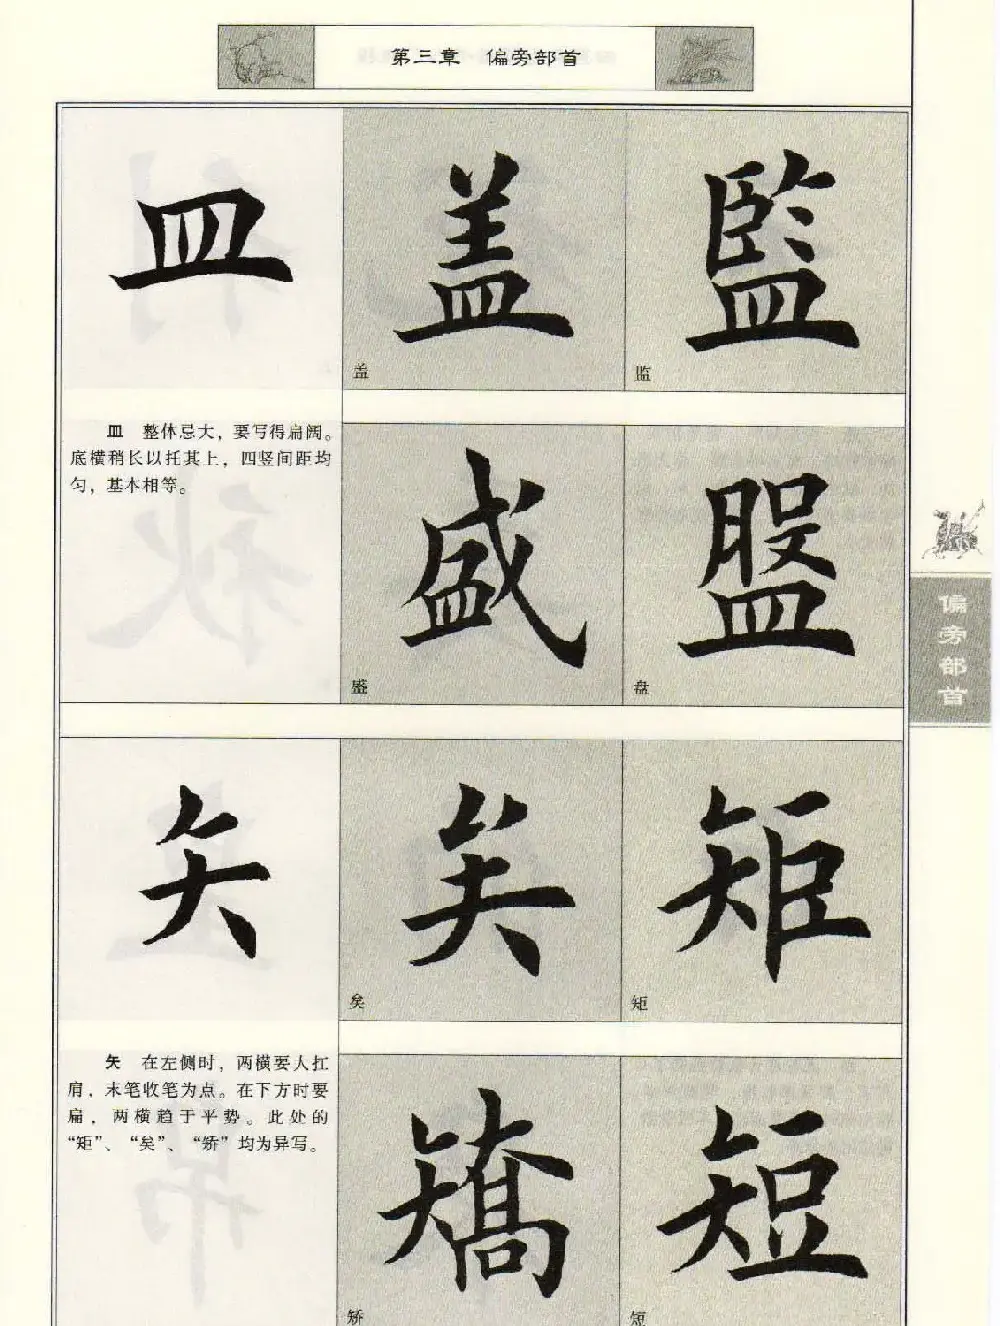 第三章 偏旁部首
皿
盖
監
盖
监
皿 整体忌大，要写得扁阔。
底横稍长以托其上，四竖间距均
匀，基本相等。
盛
盤
盛
盘
偏旁部首
矢
矣
矩
矣
矩
矢 在左侧时，两横要大扛
肩，末笔收笔为点。在下方时要
扁，两横趋于平势。此处的
“矩”、“矣”、“矫”均为异写。
矯
短
矫
短